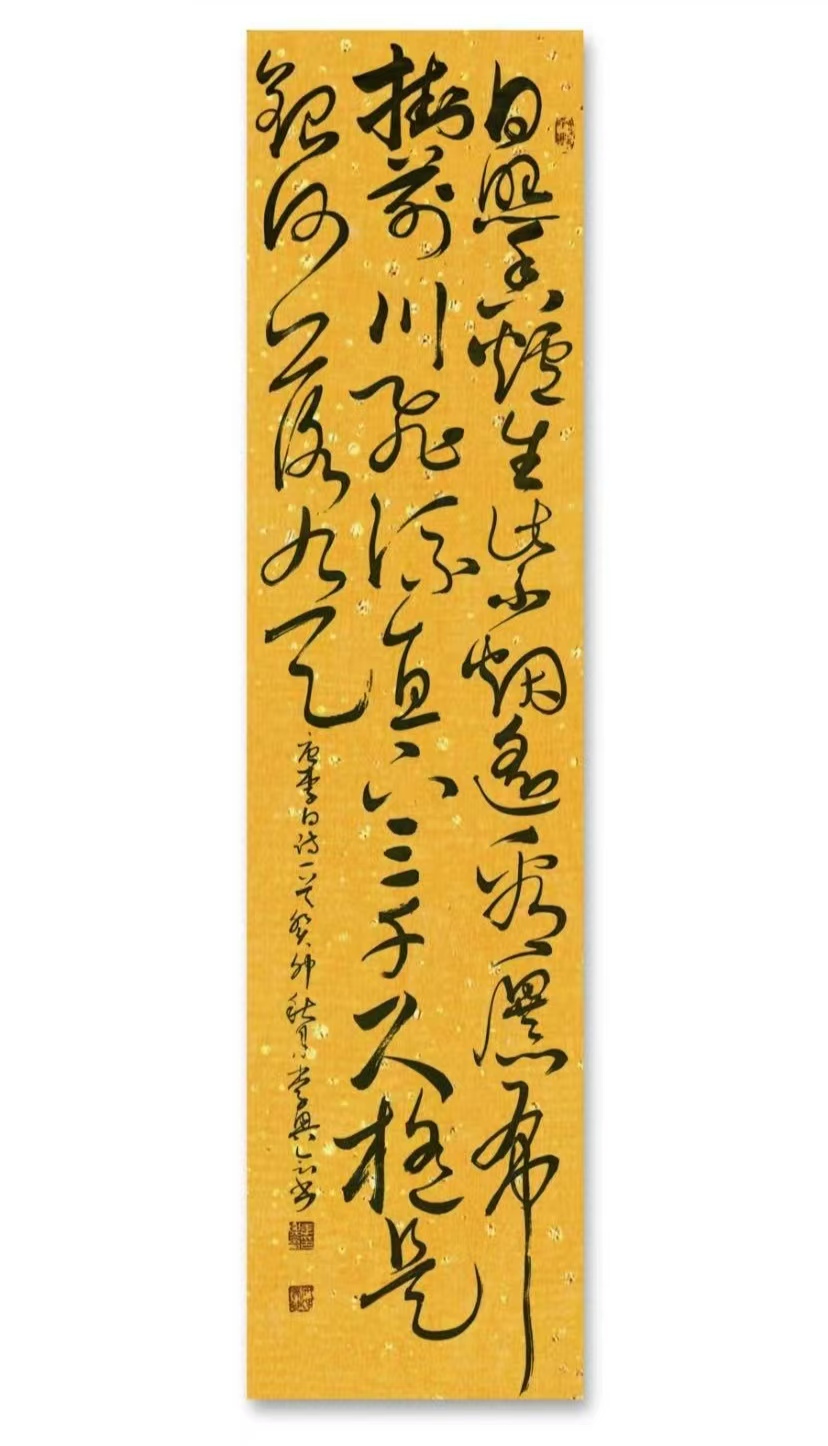 日照香爐生紫烟遥看瀑布
掛前川飛流直下三千尺疑是
銀河落九天
唐李白诗一首癸卯秋月书